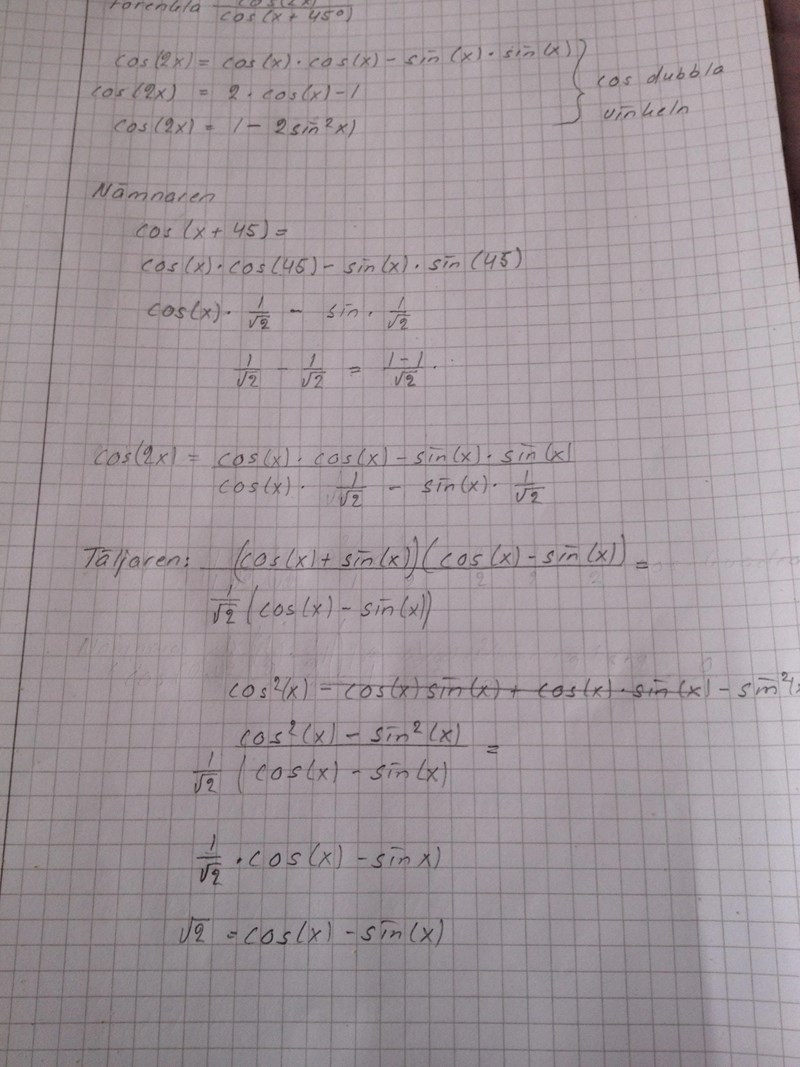 Förenkla cos(2x)/cos(x+45°)
cos(2x) = cos(x)·cos(x) - sin(x)·sin(x)
cos(2x) = 2·cos(x)-1
cos(2x) = 1 - 2sin²x)
cos dubbla
vinkeln
Nämnaren
cos(x+45)=
cos(x)·cos(45) - sin(x)·sin(45)
cos(x)·1/√2 - sin·1/√2
1/√2 - 1/√2 = 1-1/√2·
cos(2x) = cos(x)·cos(x) - sin(x)·sin(x)
cos(x)·1/√2 - sin(x)·1/√2
Täljaren: (cos(x)+sin(x))(cos(x)-sin(x)) =
1/√2 (cos(x)-sin(x))
cos²(x) - cos(x)sin(x) + cos(x)·sin(x) - sin²(x
cos²(x) - sin²(x) =
1/√2 (cos(x) - sin(x)
1/√2 ·cos(x) - sinx)
√2 = cos(x) - sin(x)